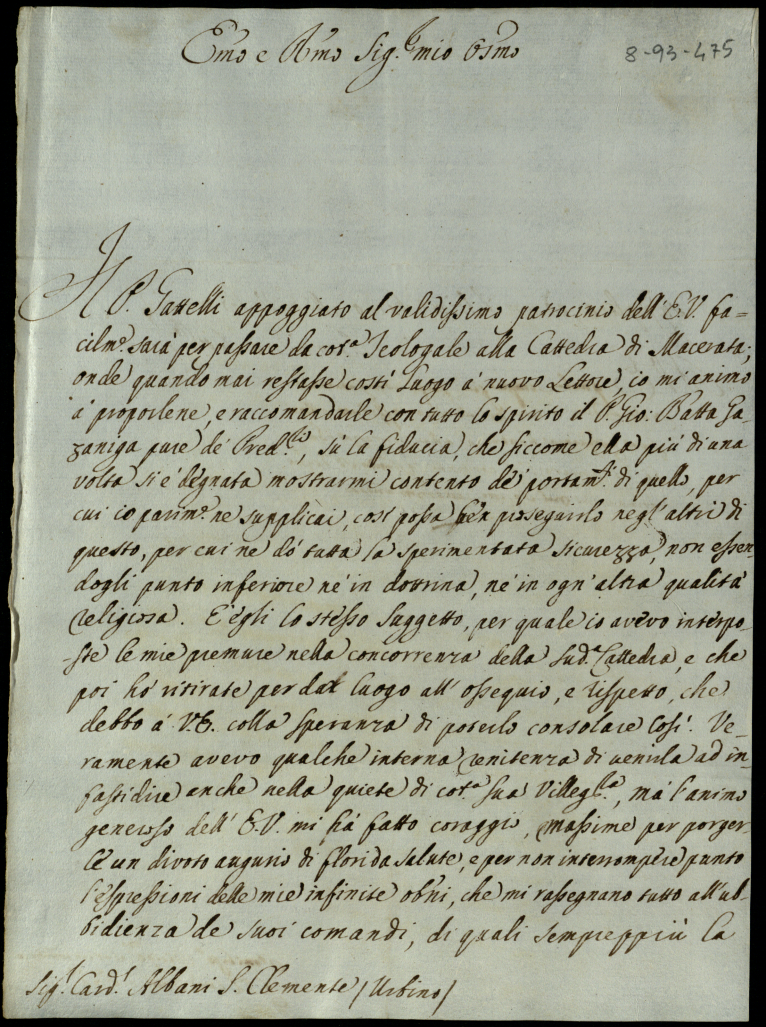 Em̃o e Rm̃o Sig.re mio Oss̃mo
8-93-475
Il P. Gattelli appoggiato al validissimo patrocinio dell' E.V. fa=
cilm.e sarà per passare da cot.a Teologale alla Cattedra di Macerata;
onde quando mai restasse costì luogo à nuovo Lettore, io mi animo
à proporlene, e raccomandarle con tutto lo spirito il P. Gio: Batta Ga=
zaniga pure de' Pred.ri, sù la fiducia, che siccome ella più di una
volta si è degnata mostrarmi contento de' portam.ti di quello, per
cui io parim.e ne supplicai, così possa ben proseguirlo negl'altri di
questo, per cui ne dò tutta la sperimentata sicurezza, non essen=
dogli punto inferiore nè in dottrina, nè in ogn'altra qualità
religiosa. E' egli lo stesso suggetto, per quale io avevo interpo=
ste le mie premure nella concorrenza della sud.a Cattedra, e che
poi hò ritirate per dar luogo all' ossequio, e rispetto, che
debbo à V.E. colla speranza di poterlo consolare così. Ve=
ramente avevo qualche interna renitenza di venirla ad in=
fastidire anche nella quiete di cot.a sua Villegg.ra, mà l'animo
generoso dell' E.V. mi hà fatto coraggio, massime per porger=
le un divoto augurio di florida salute, e per non interrompere punto
l'espressioni delle mie infinite obñi, che mi rassegnano tutto all'ub=
bidienza de suoi comandi, di quali sempreppiù la
Sig.r Card.l Albani S. Clemente /Urbino/